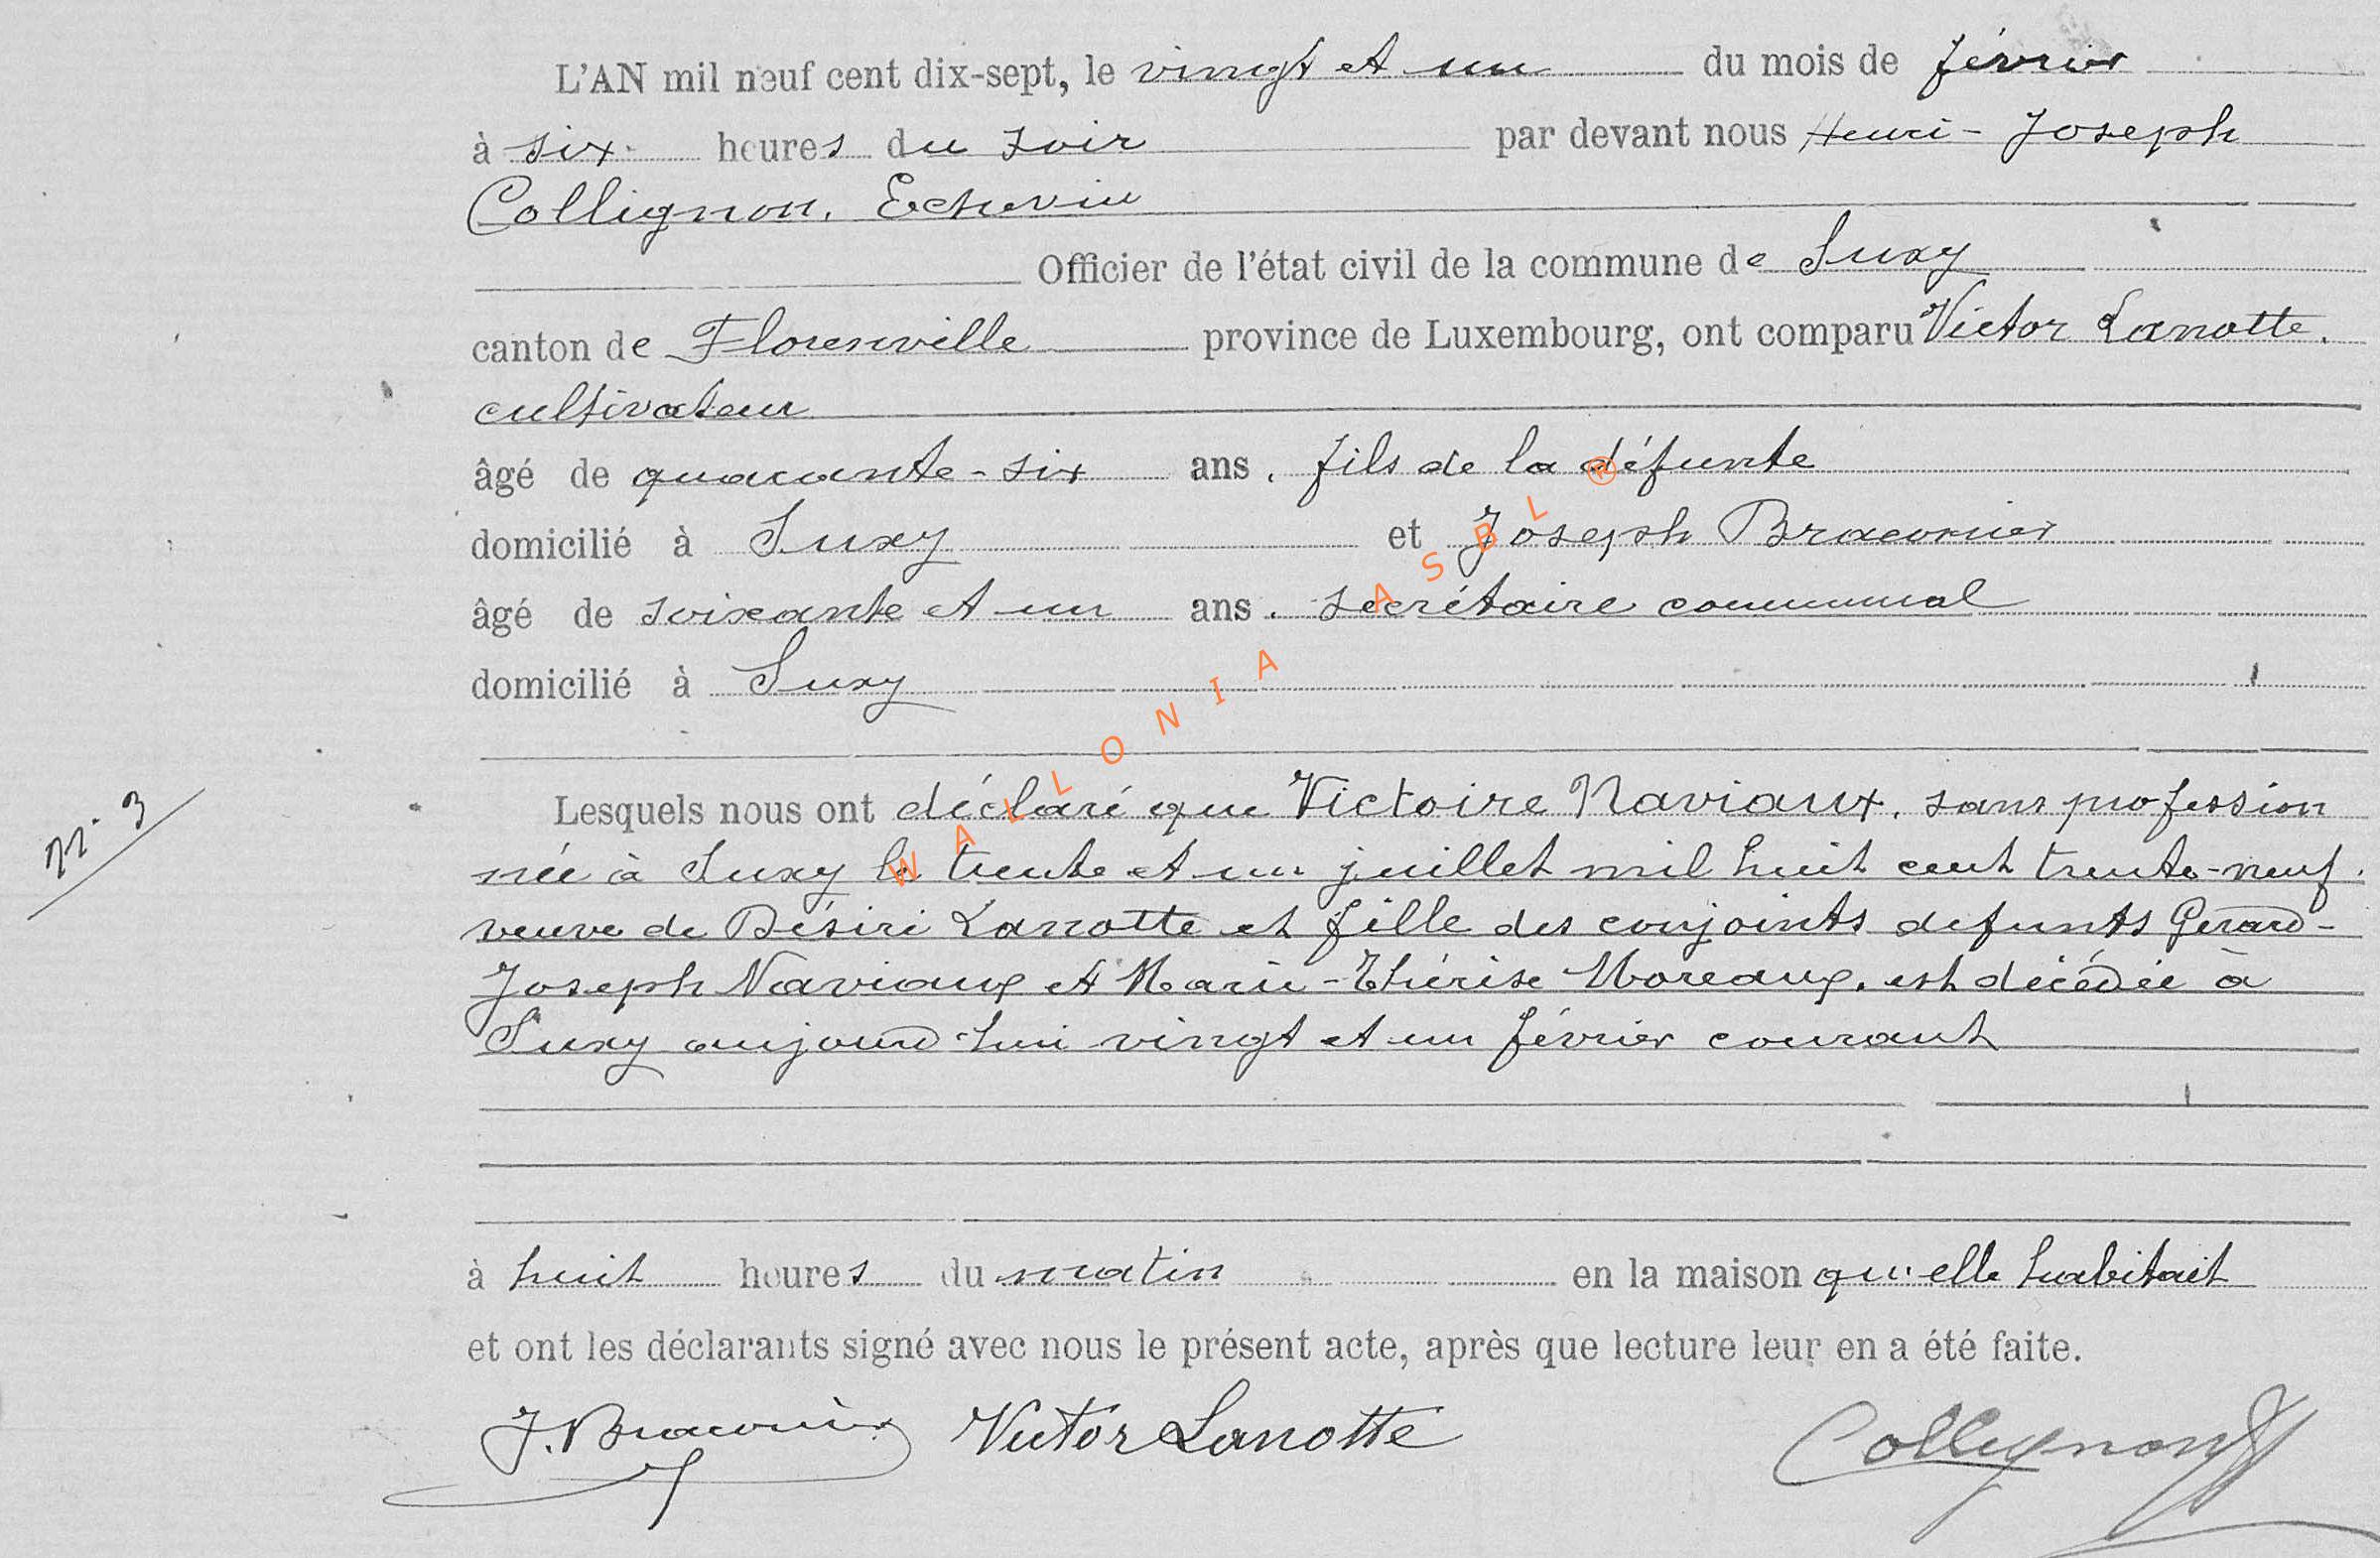 L'AN mil neuf cent dix-sept, le vingt et un du mois de février
à six heures du soir par devant nous Henri-Joseph
Collignon, Echevin
Officier de l'état civil de la commune de Suxy
canton de Florenville province de Luxembourg, ont comparu Victor Lanotte.
cultivateur
âgé de quarante-six ans, fils de la défunte
domicilié à Suxy et Joseph Braconnier
âgé de soixante et un ans, secrétaire communal
domicilié à Suxy
Lesquels nous ont déclaré que Victoire Naviaux, sans profession
née à Suxy le trente et un juillet mil huit cent trente-neuf,
veuve de Désiré Lanotte et fille des conjoints défunts Gérard-
Joseph Naviaux et Marie-Thérèse Moreaux, est décédée à
Suxy aujourd'hui vingt et un février courant
à huit heures du matin en la maison qu'elle habitait
et ont les déclarants signé avec nous le présent acte, après que lecture leur en a été faite.
J. Braconnier Victor Lanotte Collignon
N° 3
WALLONIA ASBL ®